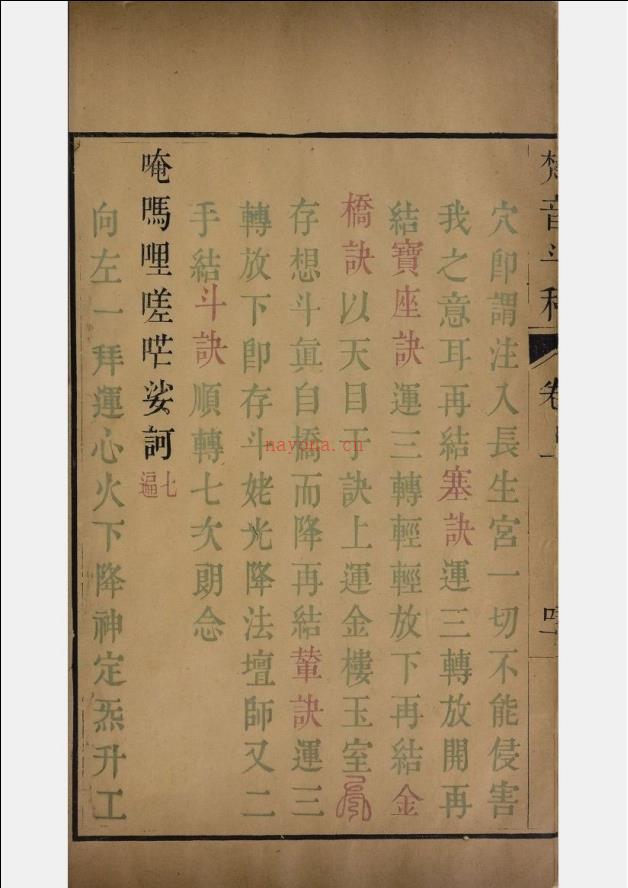 梵音斗科 卷
穴即謂注入長生宮一切不能侵害
我之意耳再結塞訣運三轉放開再
結寶座訣運三轉輕輕放下再結金
橋訣以天目于訣上運金樓玉室
存想斗眞自橋而降再結輦訣運三
轉放下即存斗姥光降法壇師又二
手結斗訣順轉七次朗念
唵嗎哩嗟𠵼娑訶七遍
向左一拜運心火下降神定炁升工
nayona.cn